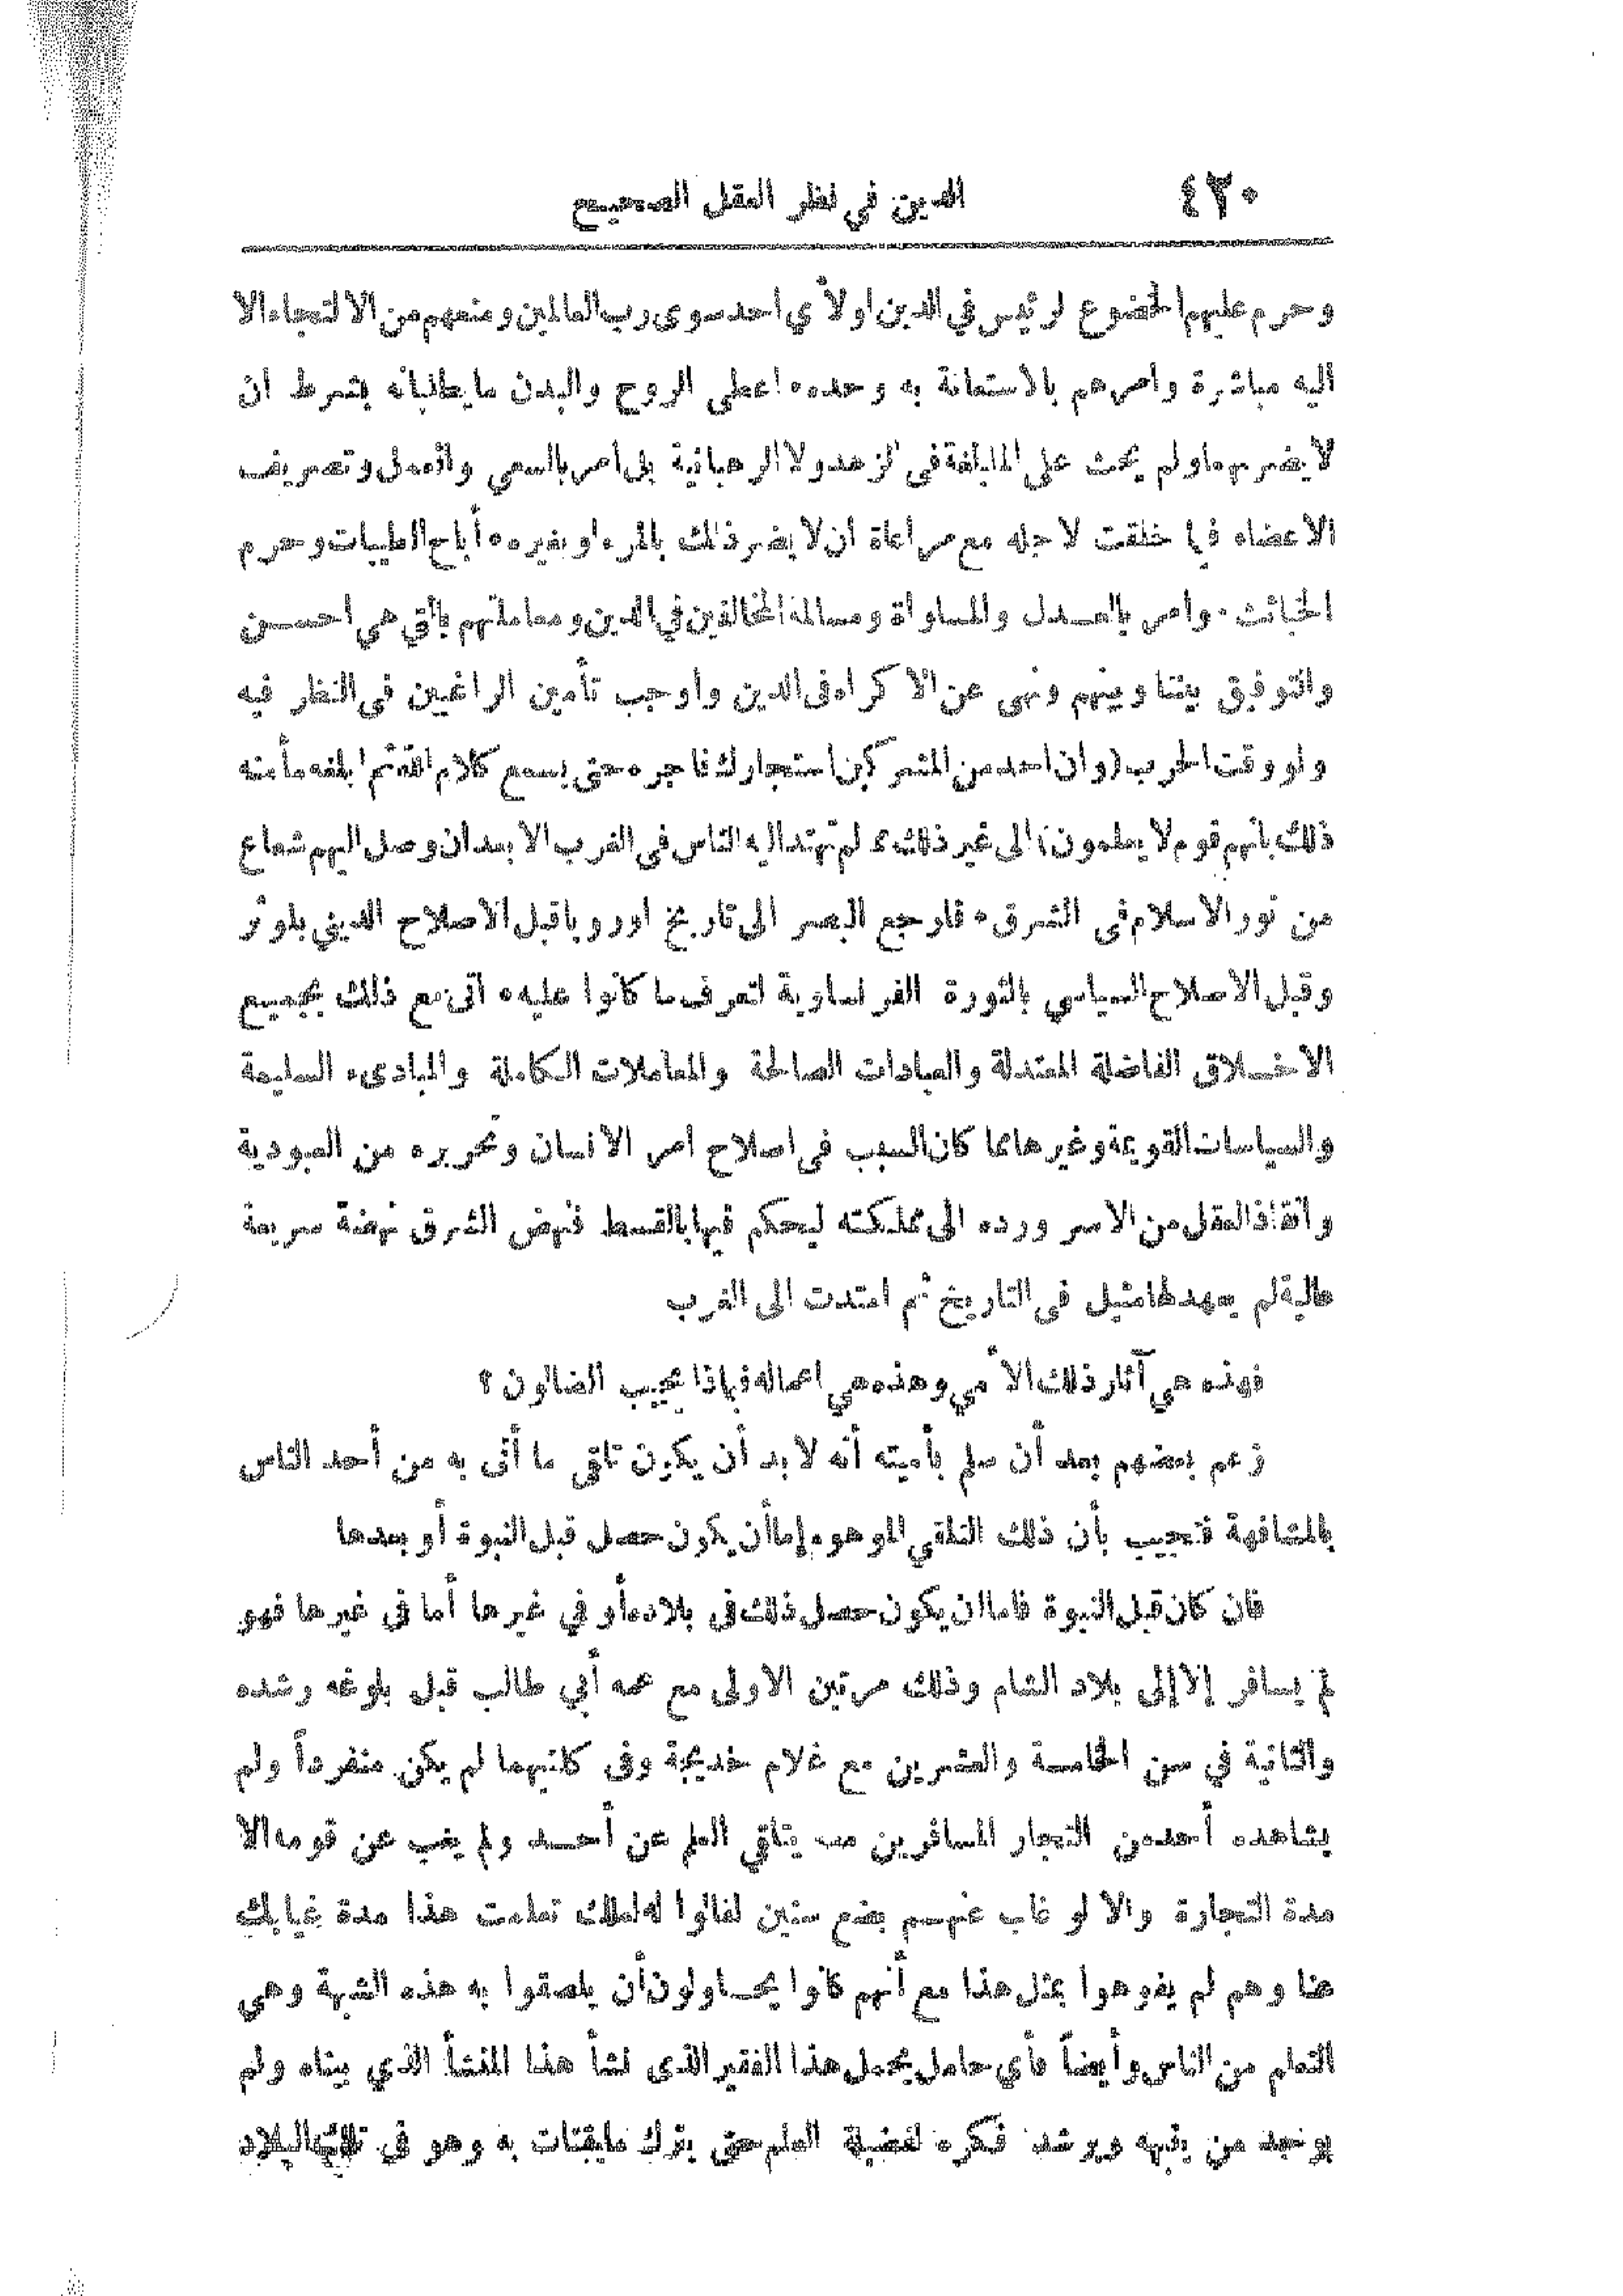 ٤٢٠ الدين في نظر العقل الصحيح
وحرم عليهم الخضوع لرئيس في الدين او لأي احد سوى رب العالمين ومنعهم من الالتجاء الا
اليه مباشرة وامرهم بالاستعانة به وحده. اعطى الروح والبدن ما يطلبانه بشرط ان
لا يضر بهما ولم يحث على المبالغة في الزهد ولا الرهبانية بل امر بالسعي والعمل وتصريف
الاعضاء فيما خلقت لاجله مع مراعاة ان لا يضر ذلك بالمرء او بغيره. أباح الطيبات وحرم
الخبائث. وامر بالعدل والمساواة ومسالمة المخالفين في الدين ومعاملتهم بالتي هي احسن
والتوفيق بيننا وبينهم ونهى عن الاكراه في الدين وأوجب تأمين الراغبين في النظر فيه
ولو وقت الحرب (وان احد من المشركين استجارك فاجره حتى يسمع كلام الله ثم ابلغه مأمنه
ذلك بانهم قوم لا يعلمون) الى غير ذلك مما لم تهتد اليه الناس في الغرب الا بعد ان وصل اليهم شعاع
من نور الاسلام في الشرق. فارجع البصر الى تاريخ اوروبا قبل الاصلاح الديني بلوثر
وقبل الاصلاح السياسي بالثورة الفرنساوية لتعرف ما كانوا عليه. اتى مع ذلك بجميع
الاخلاق الفاضلة المعتدلة والعبادات الصالحة والمعاملات الكاملة والمبادىء السليمة
والسياسات القويمة وغيرها مما كان السبب في اصلاح امر الانسان وتحريره من العبودية
وانقاذ العقل من الاسر ورده الى مملكته ليحكم فيها بالقسط فنهض الشرق نهضة سريعة
عالية لم يعهد لها مثيل في التاريخ ثم امتدت الى الغرب
فهذه هي آثار ذلك الأمي وهذه هي اعماله فبماذا يجيب الضالون؟
زعم بعضهم بعد أن سلم بأميته أنه لا بد أن يكون تلقى ما أتى به من أحد الناس
بالمشافهة فنجيب بأن ذلك التلقي الموهوم إما أن يكون حصل قبل النبوة أو بعدها
فان كان قبل النبوة فاما ان يكون حصل ذلك في بلاده أو في غيرها أما في غيرها فهو
لم يسافر إلا إلى بلاد الشام وذلك مرتين الاولى مع عمه أبي طالب قبل بلوغه رشده
والثانية في سن الخامسة والعشرين مع غلام خديجة وفي كلتيهما لم يكن منفرداً ولم
يشاهده أحد من التجار المسافرين معه يتلقى العلم عن أحد ولم يغب عن قومه الا
مدة التجارة والا لو غاب عنهم بضع سنين لقالوا له لعلك تعلمت هذا مدة غيابك
هنا وهم لم يفوهوا بمثل هذا مع أنهم كانوا يحاولون أن يلصقوا به هذه الشبهة وهي
التعلم من الناس وأيضاً فأي حامل يحمل هذا الفقير الذى نشأ هذا المنشأ الذي بيناه ولم
يوجد من ينبهه ويرشد فكره لفضيلة العلم حتى يترك مايقتات به وهو في تلك البلاد